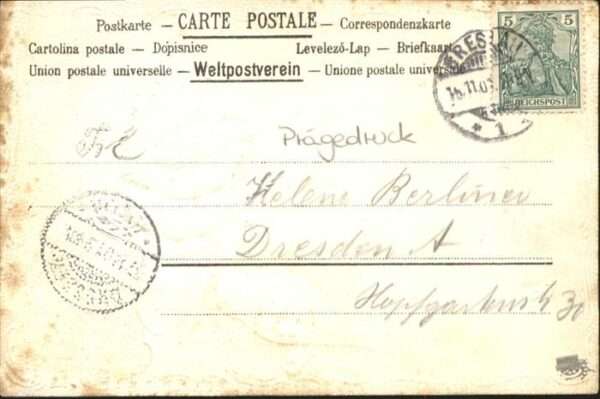 Postkarte – CARTE POSTALE – Correspondenzkarte
Cartolina postale – Dopisnice Levelező-Lap – Briefkaart
Union postale universelle – Weltpostverein – Unione postale universale
5 5
REICHSPOST
BRESLAU
* 1
Prägedruck
Helene Berliner
Dresden A
30